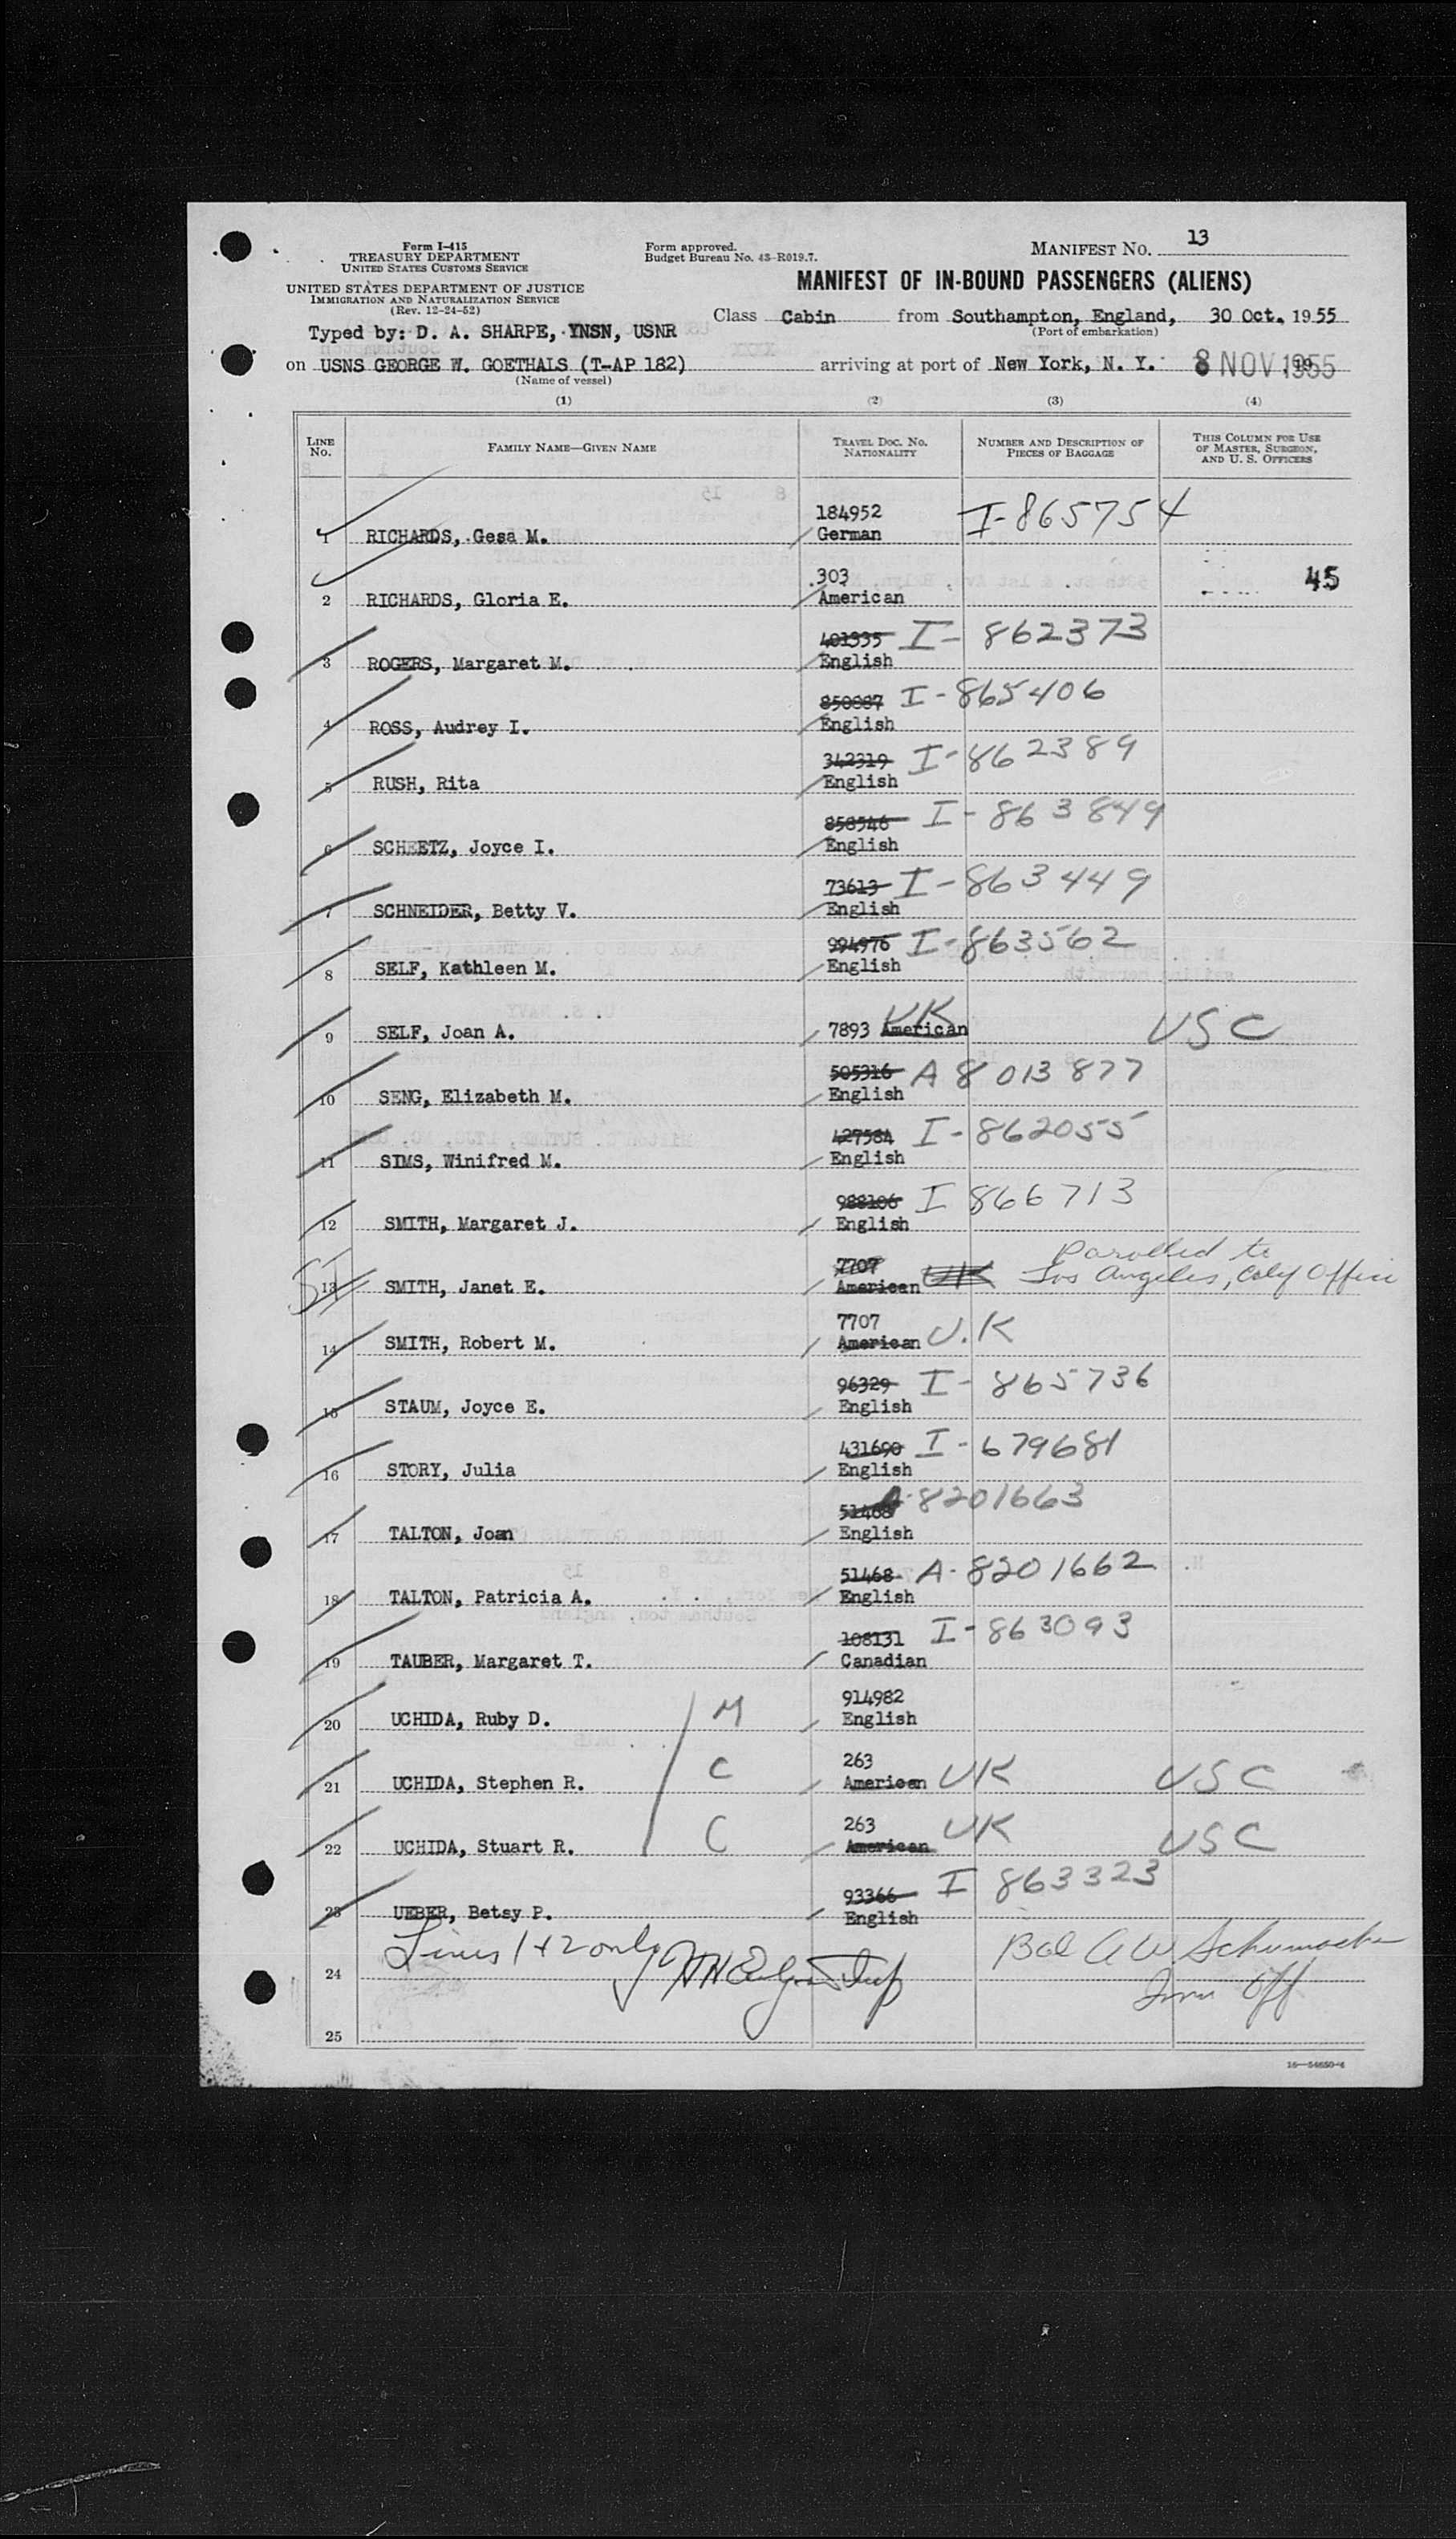 Form I-415
TREASURY DEPARTMENT
UNITED STATES CUSTOMS SERVICE
UNITED STATES DEPARTMENT OF JUSTICE
IMMIGRATION AND NATURALIZATION SERVICE
(Rev. 12-24-52)
Form approved.
Budget Bureau No. 43-R019.7.
MANIFEST NO. 13
MANIFEST OF IN-BOUND PASSENGERS (ALIENS)
Class Cabin from Southampton, England, 30 Oct. 1955
(Port of embarkation)
Typed by: D. A. SHARPE, YNSN, USNR
on USNS GEORGE W. GOETHALS (T-AP 182) arriving at port of New York, N. Y. 8 NOV 1955
(Name of vessel)
(1) (2) (3) (4)
LINE NO. FAMILY NAME—GIVEN NAME TRAVEL DOC. NO. NATIONALITY NUMBER AND DESCRIPTION OF PIECES OF BAGGAGE THIS COLUMN FOR USE OF MASTER, SURGEON, AND U. S. OFFICERS
184952 I-865754
1 RICHARDS, Gesa M. German
303 45
2 RICHARDS, Gloria E. American
401335 I-862373
3 ROGERS, Margaret M. English
850087 I-865406
4 ROSS, Audrey I. English
342319 I-862389
5 RUSH, Rita English
858546 I-863849
6 SCHEETZ, Joyce I. English
73613 I-863449
7 SCHNEIDER, Betty V. English
994976 I-863562
8 SELF, Kathleen M. English
9 SELF, Joan A. 7893 American UK USC
505316 A 8013877
10 SENG, Elizabeth M. English
427584 I-862055
11 SIMS, Winifred M. English
988106 I 866713
12 SMITH, Margaret J. English
7707 Parolled to
SI 13 SMITH, Janet E. American UK Los Angeles, Calif Office
7707
14 SMITH, Robert M. American U.K
96329 I-865736
15 STAUM, Joyce E. English
431690 I-679681
16 STORY, Julia English
51468 A-8201663
17 TALTON, Joan English
51468 A-8201662
18 TALTON, Patricia A. English
108131 I-863093
19 TAUBER, Margaret T. Canadian
914982
20 UCHIDA, Ruby D. M English
263
21 UCHIDA, Stephen R. C American UK USC
263
22 UCHIDA, Stuart R. C American UK USC
93366 I 863323
23 UEBER, Betsy P. English
Lines 1+2 only Bal A W Schumacher
24 Imm Off
25
16—54650-4